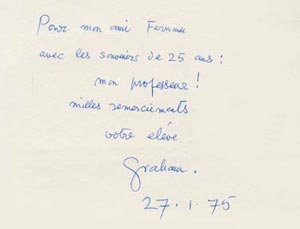 Pour mon ami
avec les souvenirs de 25 ans :
mon professeur !
milles remerciements
votre elève
Graham.
27.1.75